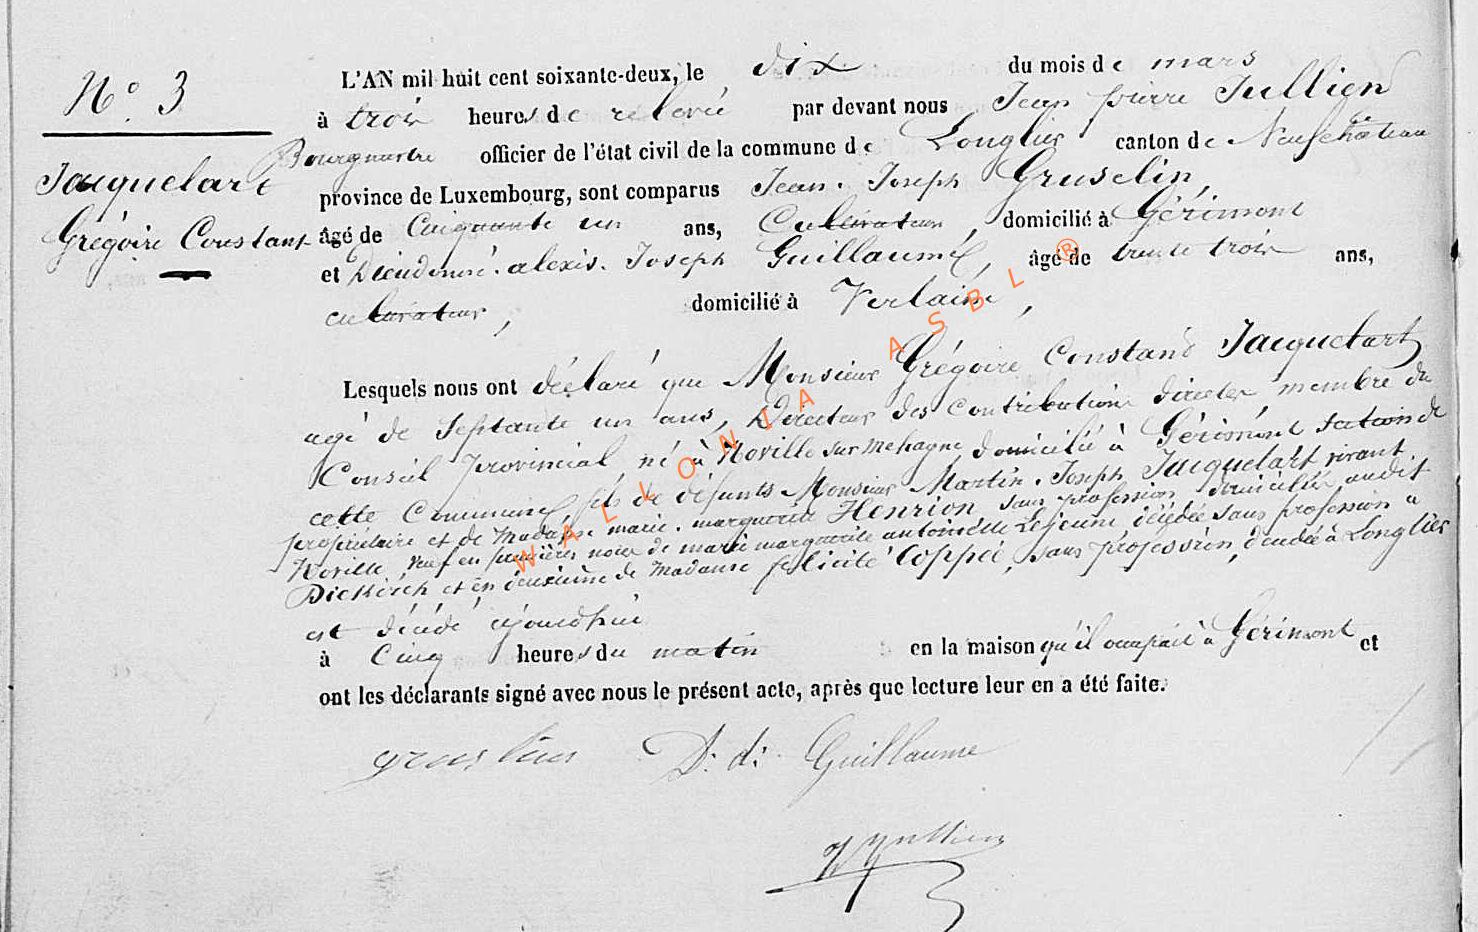 N° 3
Jacquelart
Grégoire Constant
L'AN mil huit cent soixante-deux, le dix du mois de mars
à trois heures de relevée par devant nous Jean pierre Jullien
Bourgmestre officier de l'état civil de la commune de Longlier canton de Neufchâteau
province de Luxembourg, sont comparus Jean. Joseph Gruselin,
âgé de Cinquante un ans, Cultivateur, domicilié à Gérimont
et Dieudonné. alexis. Joseph Guillaume, âgé de trente trois ans,
cultivateur, domicilié à Verlaine,
Lesquels nous ont déclaré que Monsieur Grégoire Constant Jacquelart
agé de Septante un ans, Directeur des Contributions directes membre du
Conseil provincial, né à Noville sur Mehagne domicilié à Gérimont section de
cette Commune, fils de défunts Monsieur Martin. Joseph Jacquelart vivant
propriétaire et de Madame marie. marguerite Henrion sans profession domiciliée audit
Noville, veuf en premières noces de marie marguerite antoinette Lejeune décédée sans profession à
Diekirch et en deuxième de Madame felicité Coppée, sans profession, décédée à Longlier
est décédé aujourd'hui
à Cinq heures du matin en la maison qu'il occupait à Gérimont et
ont les déclarants signé avec nous le présent acte, après que lecture leur en a été faite.
D. d. Guillaume
Jullien
WALLONIA ASBL ®